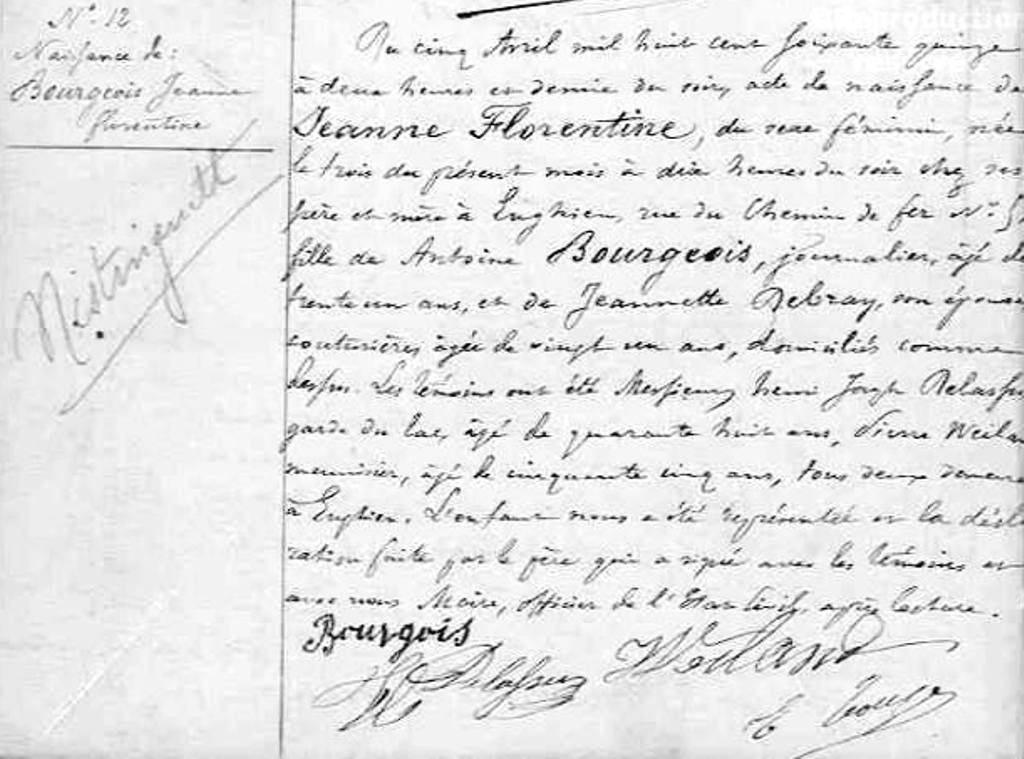 N° 12
Naissance de:
Bourgeois Jeanne
florentine
Mistinguett
Du cinq Avril mil huit cent soixante quinze
à deux heures et demie du soir, acte de naissance de
Jeanne Florentine, du sexe féminin, née
le trois du présent mois à dix heures du soir chez ses
père et mère à Enghien, rue du Chemin de fer N°
fille de Antoine Bourgeois, journalier, âgé de
trente un ans, et de Jeannette Debray, son épouse,
couturière, âgée de vingt un ans, domiciliés comme
dessus. Les témoins ont été Messieurs henri Joseph Delassus
garde du lac, âgé de quarante huit ans, Pierre Weilan
menuisier, âgé de cinquante cinq ans, tous deux demeura
à Enghien. L'enfant nous a été représentée et la décla
ration faite par le père qui a signé avec les témoins et
avec nous Maire, officier de l'Etat Civil, après lecture.
Bourgois
Delassus Weiland